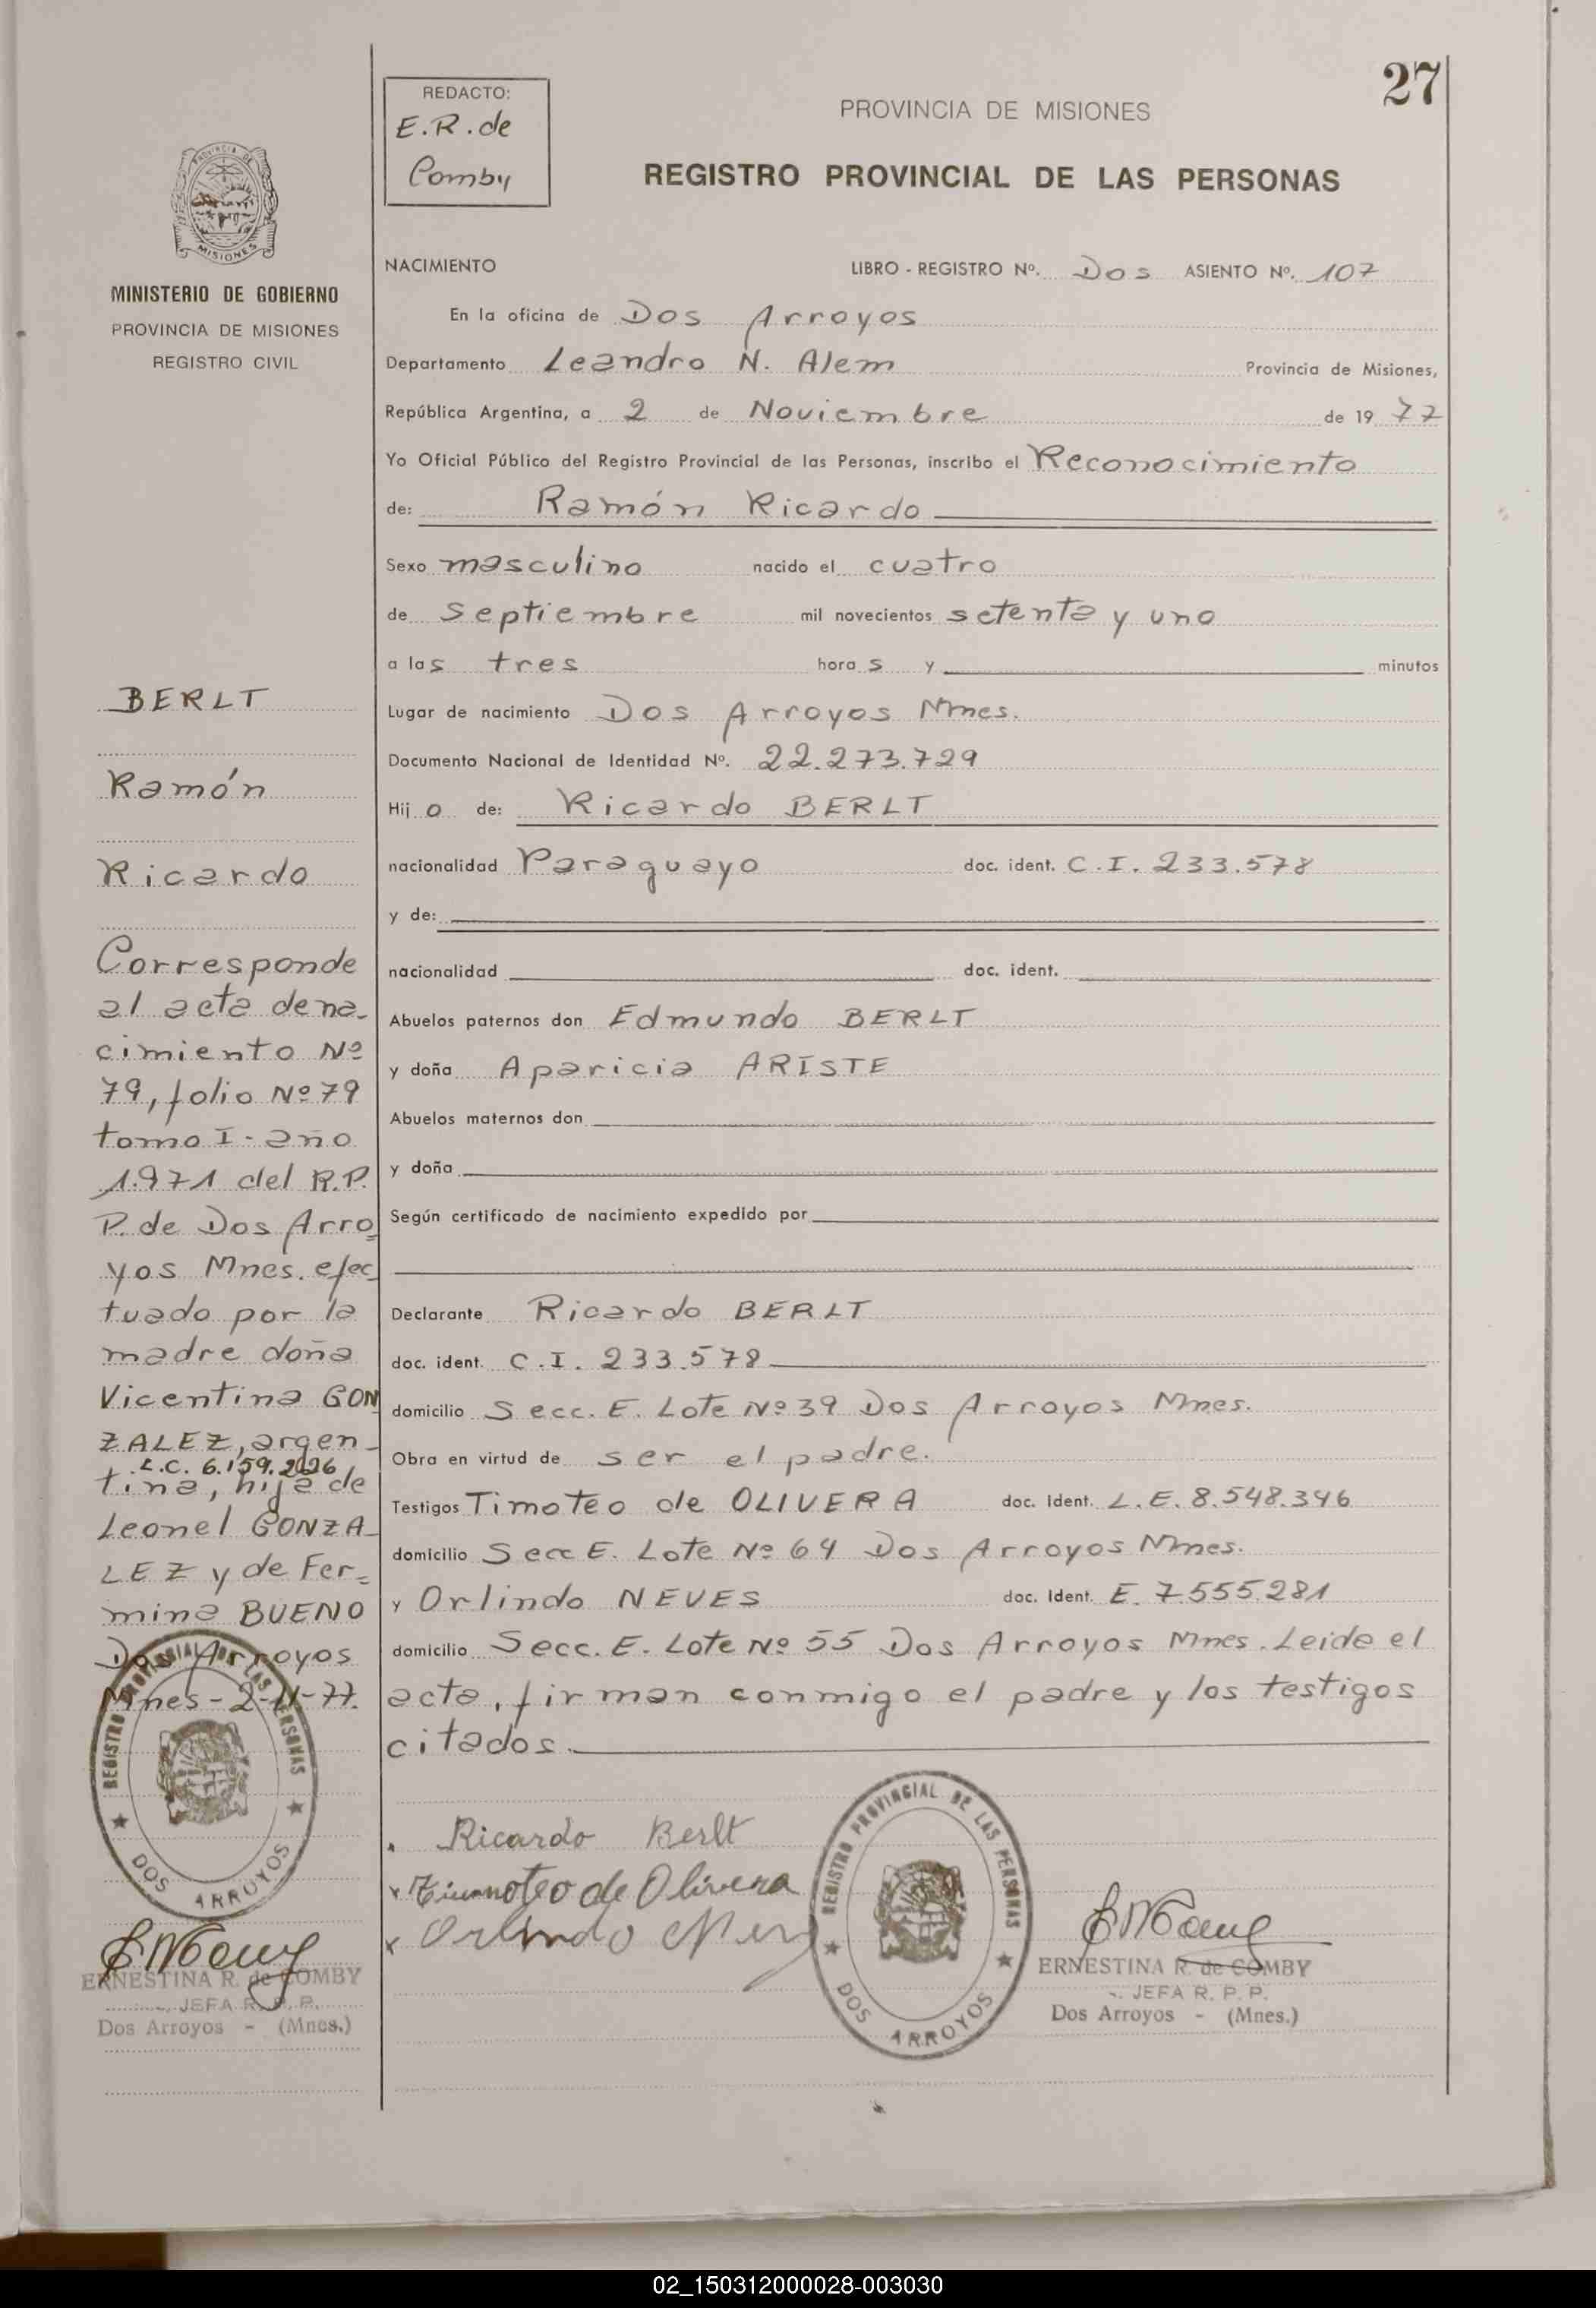 27
REDACTO:
E.R. de
Comby
PROVINCIA DE MISIONES
REGISTRO PROVINCIAL DE LAS PERSONAS
PROVINCIA DE
MISIONES
MINISTERIO DE GOBIERNO
PROVINCIA DE MISIONES
REGISTRO CIVIL
BERLT
Ramón
Ricardo
Corresponde
al acta de na-
cimiento Nº
79, folio Nº 79
tomo I - año
1.971 del R.P.
P. de Dos Arro
yos Mnes. efec
tuado por la
madre doña
Vicentina GON
ZALEZ, argen-
L.C. 6.159.2026
tina, hija de
Leonel GONZA
LEZ y de Fer=
mina BUENO
Dos Arroyos
Mnes - 2-11-77.
REGISTRO PROVINCIAL DE LAS PERSONAS
DOS ARROYOS
ERNESTINA R. de COMBY
JEFA R. P. P.
Dos Arroyos - (Mnes.)
NACIMIENTO LIBRO - REGISTRO Nº. Dos ASIENTO Nº. 107
En la oficina de Dos Arroyos
Departamento Leandro N. Alem Provincia de Misiones,
República Argentina, a 2 de Noviembre de 19 77
Yo Oficial Público del Registro Provincial de las Personas, inscribo el Reconocimiento
de: Ramón Ricardo
Sexo masculino nacido el cuatro
de Septiembre mil novecientos setenta y uno
a las tres horas y minutos
Lugar de nacimiento Dos Arroyos Mnes.
Documento Nacional de Identidad Nº. 22.273.729
Hijo de: Ricardo BERLT
nacionalidad Paraguayo doc. ident. C.I. 233.578
y de:
nacionalidad doc. ident.
Abuelos paternos don Edmundo BERLT
y doña Aparicia ARISTE
Abuelos maternos don
y doña
Según certificado de nacimiento expedido por
Declarante Ricardo BERLT
doc. ident. C.I. 233.578
domicilio Secc. E. Lote Nº 39 Dos Arroyos Mnes.
Obra en virtud de ser el padre.
Testigos Timoteo de OLIVERA doc. Ident. L.E. 8.548.346
domicilio Secc E. Lote Nº 64 Dos Arroyos Mnes.
y Orlindo NEVES doc. Ident. E. 7.555.281
domicilio Secc. E. Lote Nº 55 Dos Arroyos Mnes. Leida el
acta, firman conmigo el padre y los testigos
citados.
Ricardo Berlt
x Timoteo de Olivera
x Orlindo
REGISTRO PROVINCIAL DE LAS PERSONAS
DOS ARROYOS
ERNESTINA R. de COMBY
JEFA R. P. P.
Dos Arroyos - (Mnes.)
02_150312000028-003030